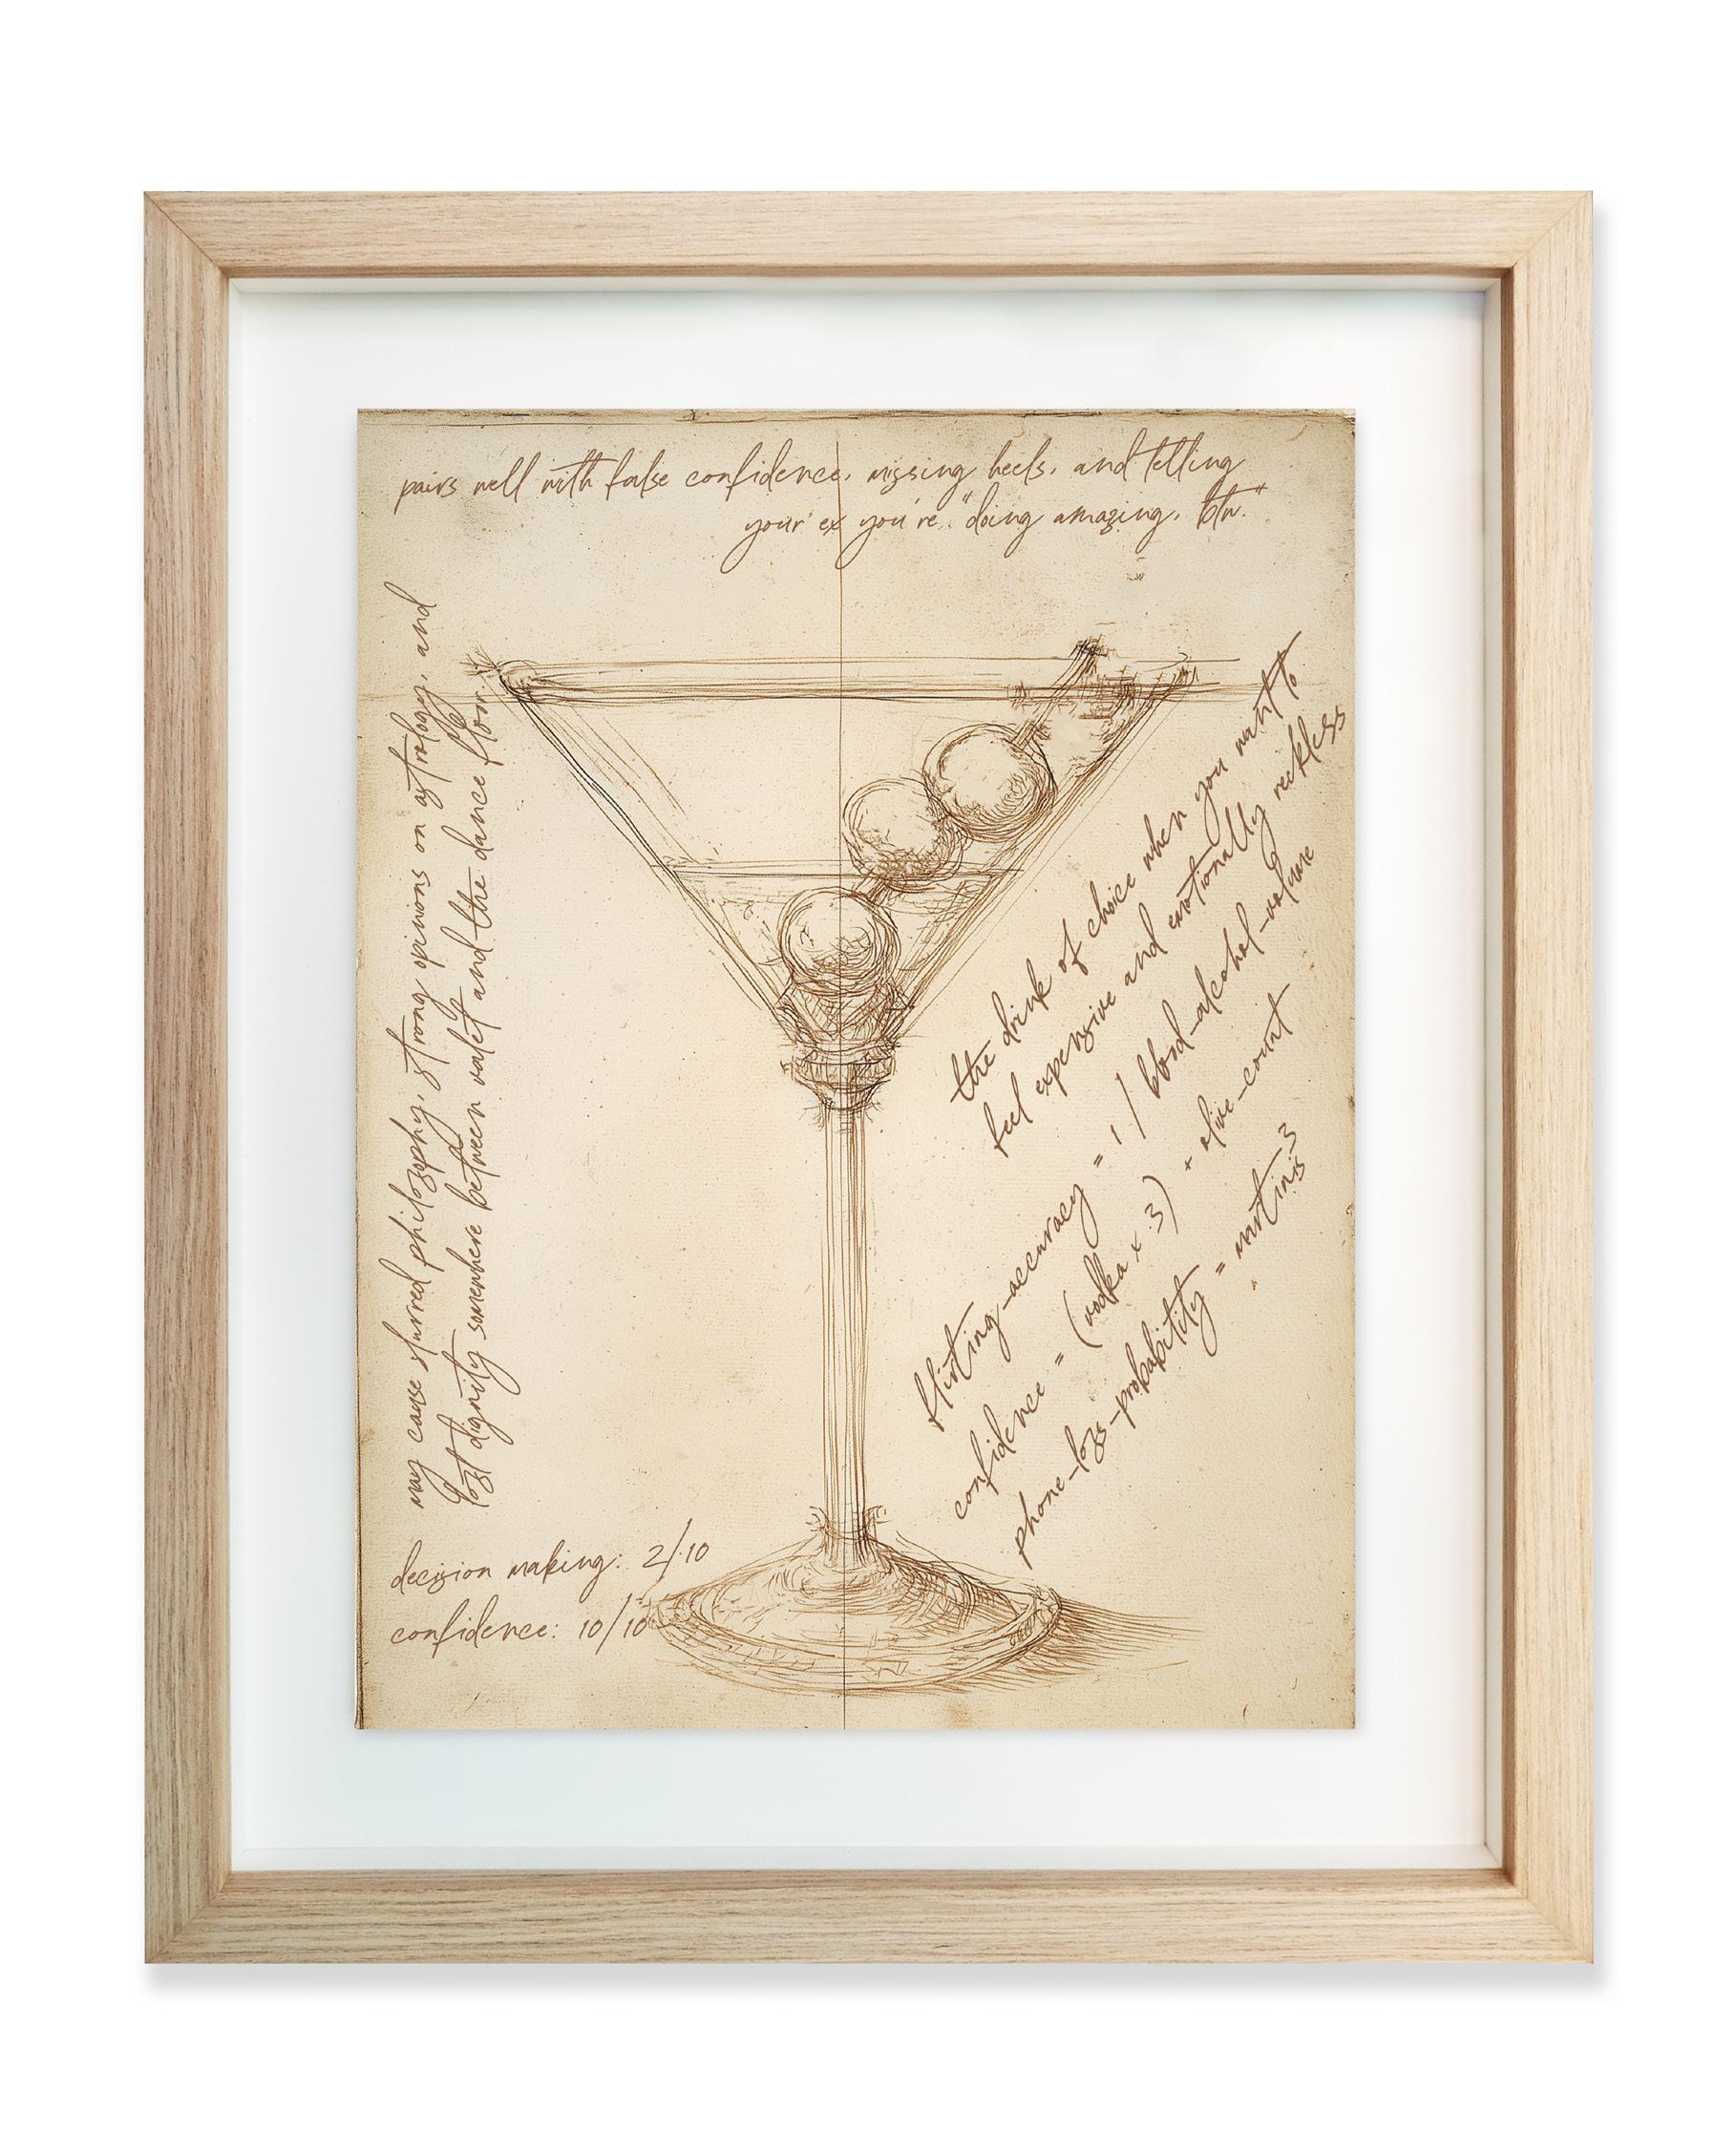 pairs well with false confidence, missing heels, and telling
your ex you're "doing amazing, btw."
may cause slurred philosophy, strong opinions on astrology, and
lost dignity somewhere between valet and the dance floor.
the drink of choice when you want to
feel expensive and emotionally reckless
flirting_accuracy = 1 / blood_alcohol_volume
confidence = (vodka x 3) + olive_count
phone_loss_probability = martinis^3
decision making: 2/10
confidence: 10/10